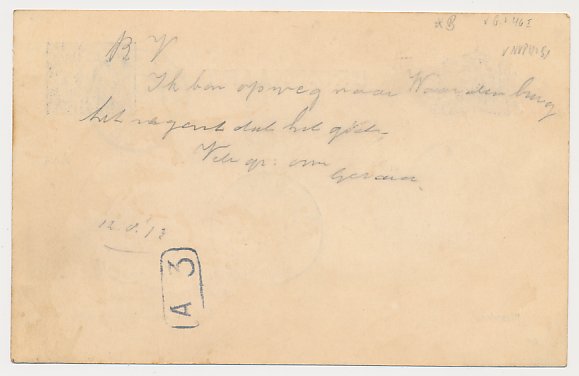 B V
Ik ben opweg naar Waardenburg
het regent dat het giet.
Vele gr: van
Gerard.
12.8.13
A 3